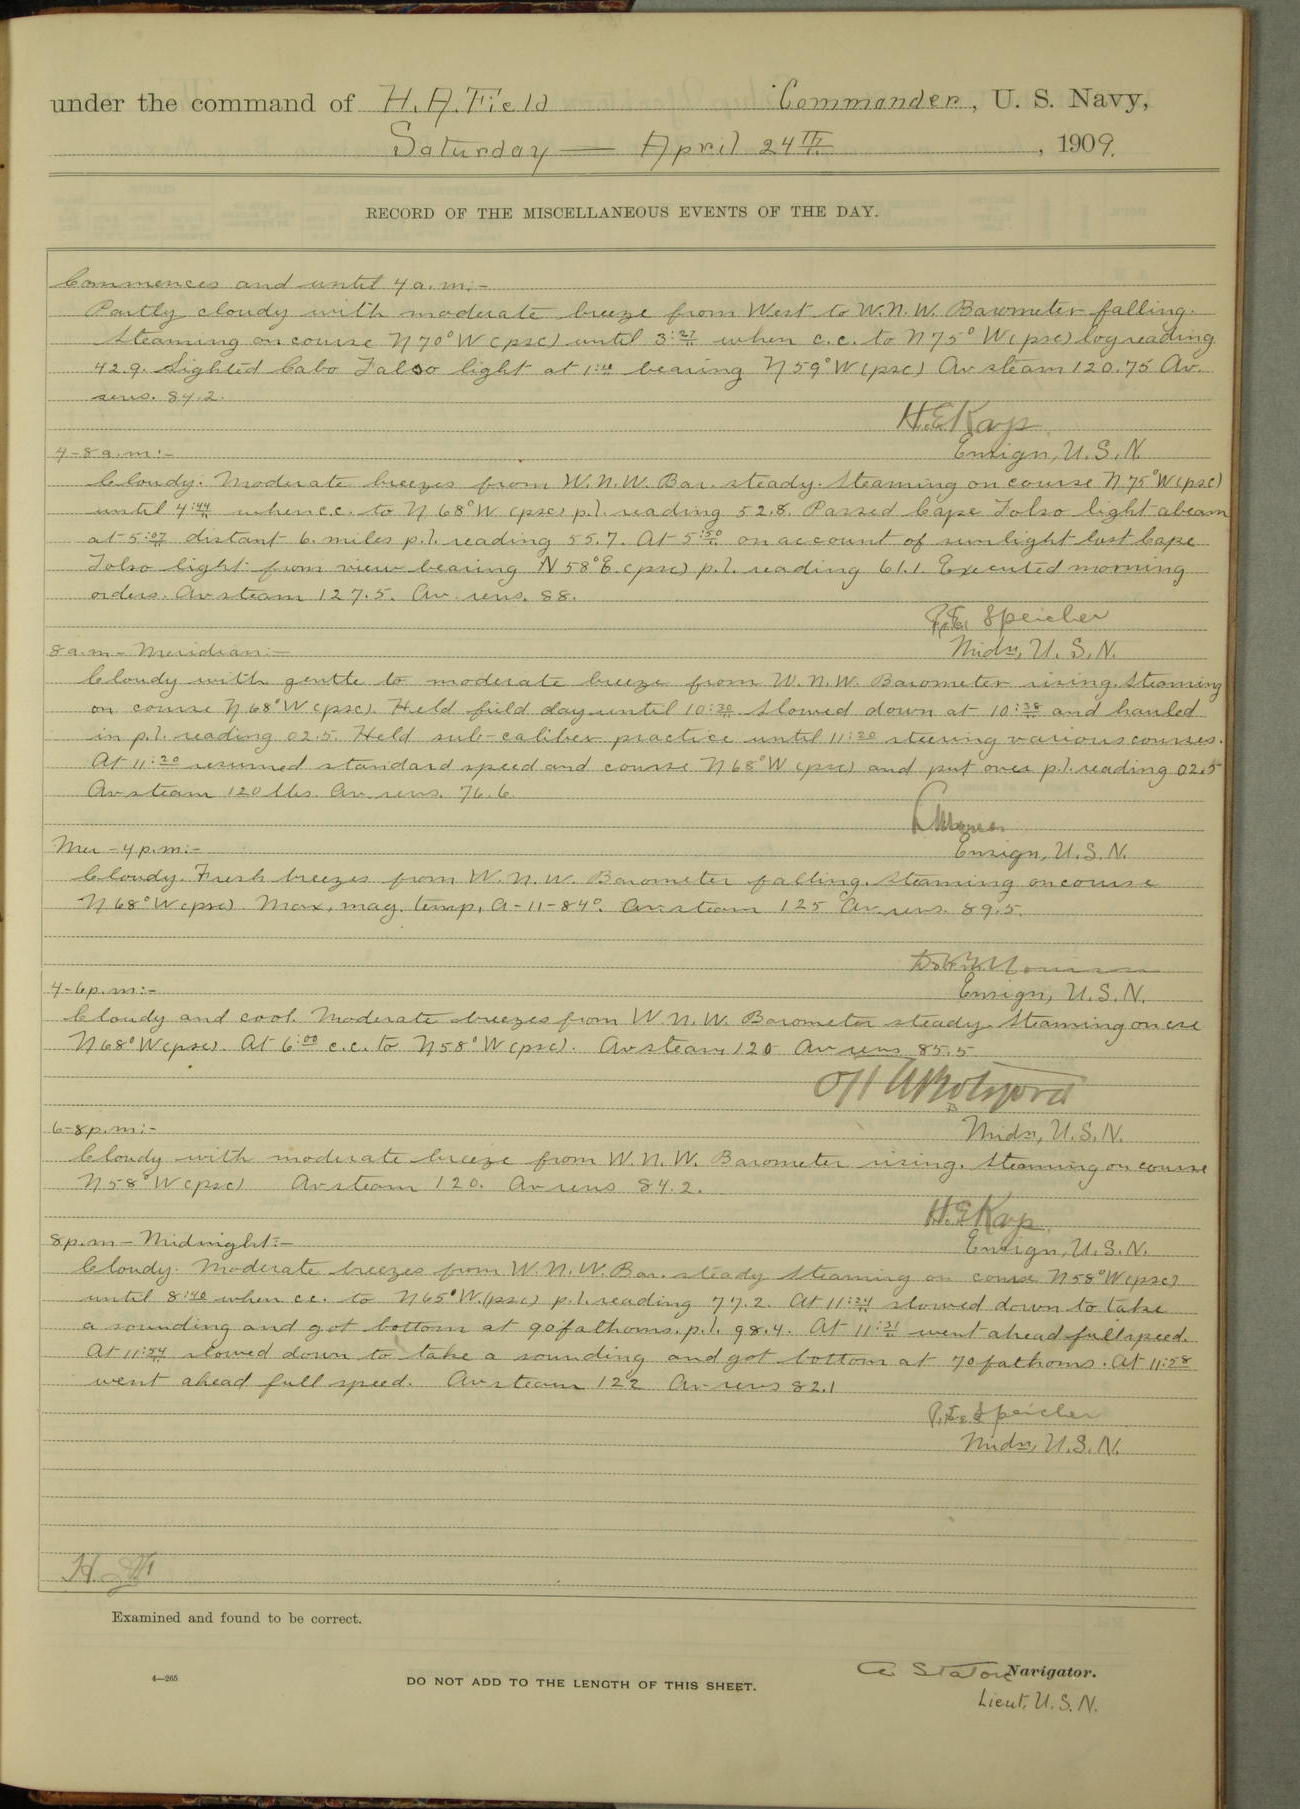 under the command of H. A. Field Commander, U. S. Navy,
Saturday — April 24TH, 1909.
RECORD OF THE MISCELLANEOUS EVENTS OF THE DAY.
Commences and until 4 a.m:-
Partly cloudy with moderate breeze from West to W.N.W. Barometer falling.
Steaming on course N 70° W (psc) until 3:27 when c.c. to N 75° W (psc) log reading
42.9. Sighted Cabo Falso light at bearing N 59° W (psc) Av steam 120.75 Av.
revs. 84.2.
H.E. Kays
Ensign, U.S.N.
4-8 a.m:-
Cloudy. Moderate breezes from W.N.W. Bar. steady. Steaming on course N 75° W (psc)
until 4:44 when c.c. to N 68° W (psc) p.l. reading 52.8. Passed Cape Falso light abeam
at 5:07 distant 6. miles p.l. reading 55.7. At 5:50 on account of sunlight lost Cape
Falso light from view bearing N 58° E. (psc) p.l. reading 61.1. Executed morning
orders. Av steam 127.5. Av. revs. 88.
Speicher
Midn, U.S.N.
8 a.m - Meridian:-
Cloudy with gentle to moderate breeze from W.N.W. Barometer rising. Steaming
on course N 68° W (psc). Held field day until 10:30 Slowed down at 10:38 and hauled
in p.l. reading 02.5. Held sub-caliber practice until 11:20 steering various courses.
At 11:20 resumed standard speed and course N 68° W (psc) and put over p.l. reading 02.5
Av steam 120 lbs. Av revs. 76.6.
Ensign, U.S.N.
Mer - 4 p.m:-
Cloudy. Fresh breezes from W.N.W. Barometer falling. Steaming on course
N 68° W (psc) Max. mag. temp. A-11-84°. Av steam 125 Av revs. 89.5.
Ensign, U.S.N.
4-6 p.m:-
Cloudy and cool. Moderate breezes from W N.W. Barometer steady. Steaming on cse
N 68° W (psc). At 6:00 c.c. to N 58° W (psc). Av steam 120 Av revs 85.5
Botsford
Midn, U.S.N.
6-8 p.m:-
Cloudy with moderate breeze from W.N.W. Barometer rising. Steaming on course
N 58° W (psc) Av steam 120. Av revs 84.2.
H.E. Kays.
Ensign, U.S.N.
8 p.m - Midnight:-
Cloudy. Moderate breezes from W.N.W. Bar. steady Steaming on course N 58° W (psc)
until 8:40 when c.c. to N 65° W. (psc) p.l. reading 77.2. At 11:24 slowed down to take
a sounding and got bottom at 90 fathoms. p.l. 98.4. At 11:31 went ahead full speed.
At 11:54 slowed down to take a sounding and got bottom at 70 fathoms. At 11:58
went ahead full speed. Av steam 122 Av revs 82.1
Speicher
Midn, U.S.N.
Examined and found to be correct.
A Staton Navigator.
4—265 DO NOT ADD TO THE LENGTH OF THIS SHEET.
Lieut, U.S.N.